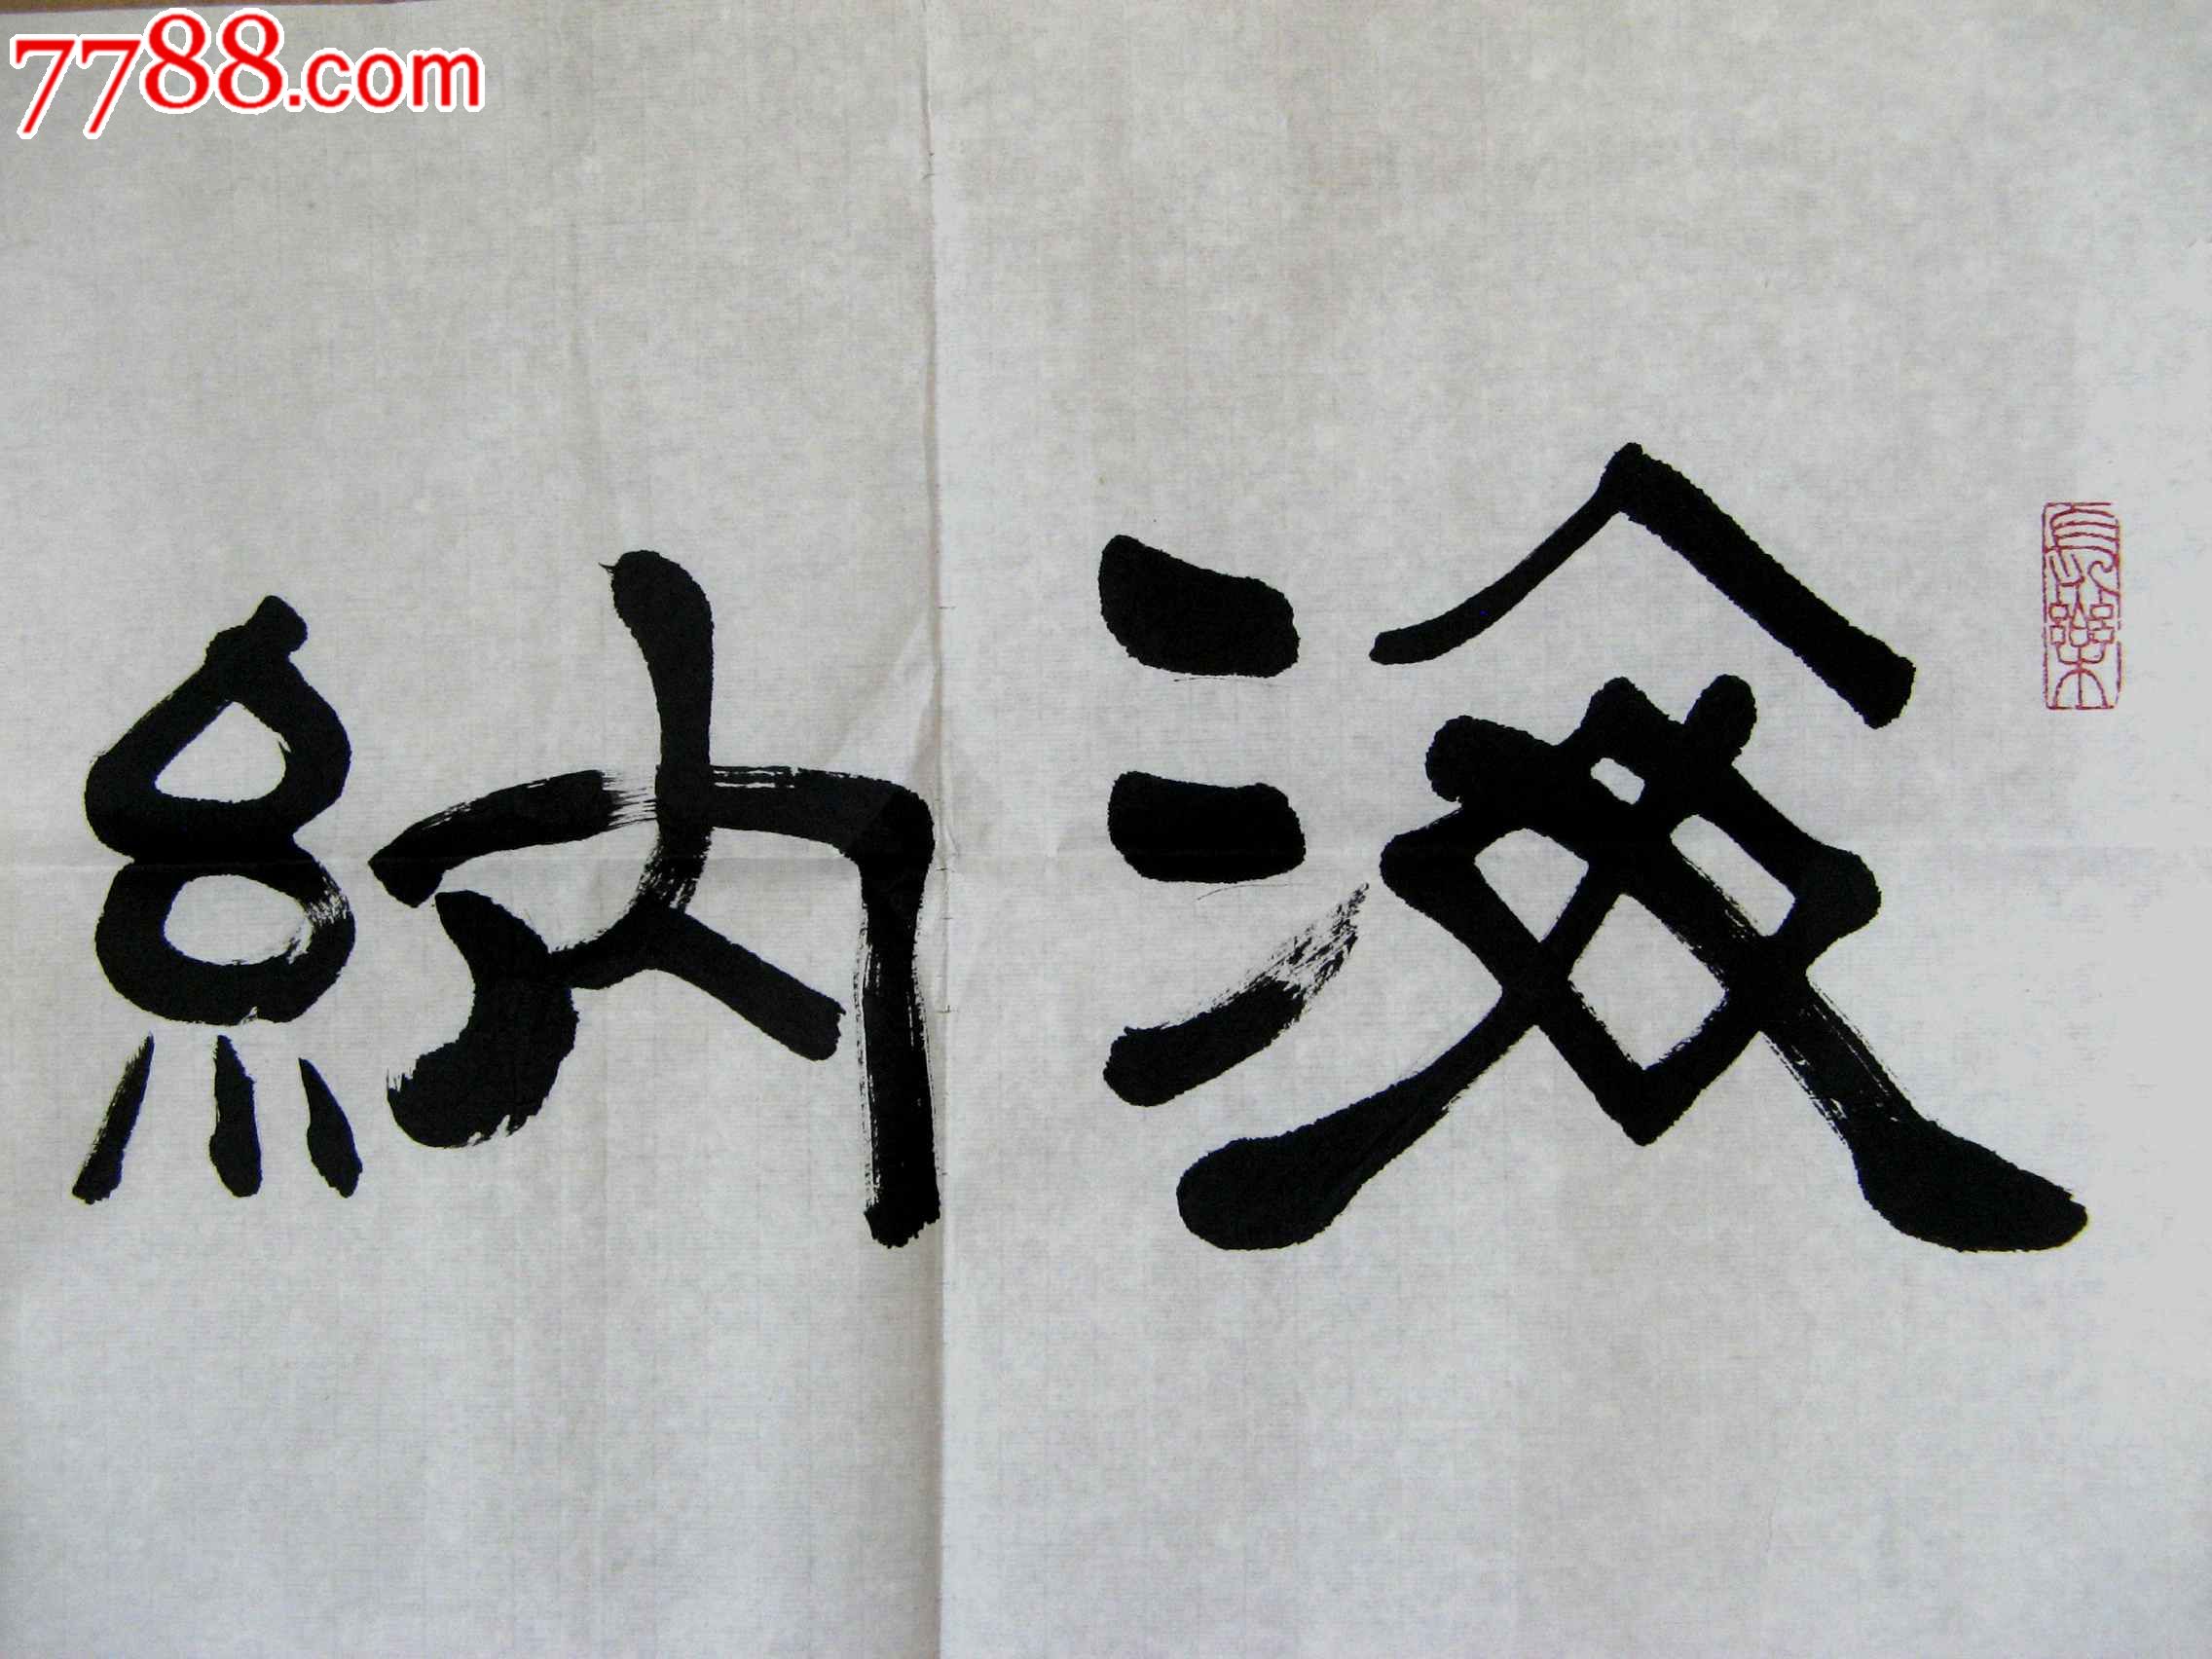 7788.com
海納